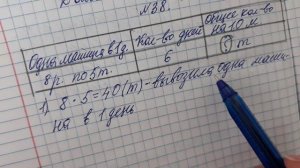 №38.
Одна машина в 1 д.
Кол-во дней
Общее кол-во
на 10 м
8 р. по 5 т.
6
? т
1) 8 · 5 = 40 (т) - вывозила одна маши-
на в 1 день